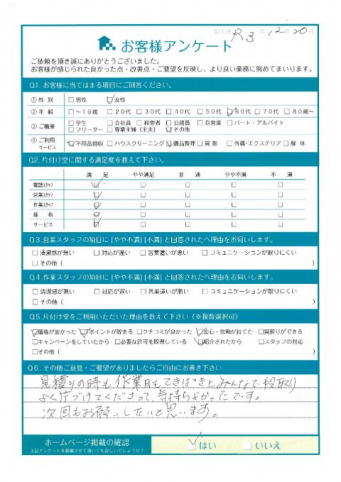 記入日 R3年 12月 20日
お客様アンケート
ご依頼を頂き誠にありがとうございました。
お客様が感じられた良かった点・改善点・ご要望を反映し、より良い業務に努めてまいります。
Q1. お客様に当てはまる項目にご回答ください。
① 性 別 □男性 ☑女性
② 年 齢 □~19歳 □20代 □30代 □40代 □50代 ☑60代 □70代 □80歳~
③ ご職業 □学生 □会社員 □経営者 □公務員 □自営業 □パート・アルバイト
□フリーター □専業主婦(主夫) ☑その他
④ ご利用サービス ☑不用品回収 □ハウスクリーニング ☑遺品整理 □買取 □外構・エクステリア □解体
Q2. 片付け堂に関する満足度を教えて下さい。
満 足 やや満足 普 通 やや不満 不 満
電話スタッフ ☑ □ □ □ □
営業スタッフ ☑ □ □ □ □
作業スタッフ ☑ □ □ □ □
価 格 ☑ □ □ □ □
サービス ☑ □ □ □ □
Q3. 営業スタッフの項目に [やや不満] [不満] と回答された方へ理由をお伺いします。
□清潔感が無い □対応が遅い □言葉遣いが悪い □コミュニケーションが取りにくい
□その他( )
Q4. 作業スタッフの項目に [やや不満] [不満] と回答された方へ理由をお伺いします。
□清潔感が無い □対応が遅い □言葉遣いが悪い □コミュニケーションが取りにくい
□その他( )
Q5. 片付け堂をご利用いただいた理由を教えて下さい(※複数選択可)
☑価格が安かった ☑ポイントが貯まる □クチコミが良かった ☑安心・信頼が出来た □買取りができる
□キャンペーンをしていたから □必要な許可を取得している ☑紹介されたから □スタッフの対応
□その他( )
Q6. その他ご意見・ご要望がありましたらご自由にお書き下さい
見積りの時も作業日もてきぱきとみんなで段取り
よく片づけてくださって、気持ちよかったです。
次回もお願いしたいと思います。
ホームページ掲載の確認 ☑はい □いいえ
上記アンケートを掲載させて頂いても宜しいでしょうか?